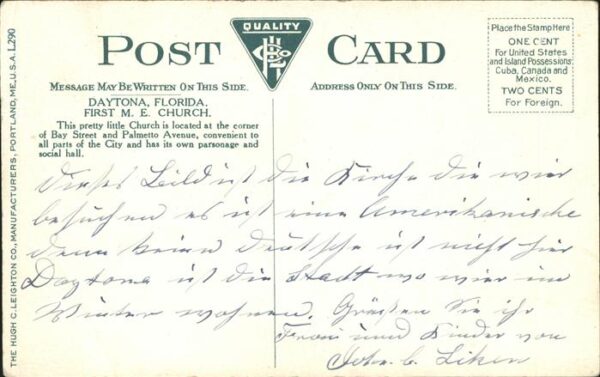 QUALITY
POST CARD
Place the Stamp Here
ONE CENT
For United States
and Island Possessions
Cuba, Canada and
Mexico.
TWO CENTS
For Foreign.
MESSAGE MAY BE WRITTEN ON THIS SIDE.
ADDRESS ONLY ON THIS SIDE.
DAYTONA, FLORIDA.
FIRST M. E. CHURCH.
This pretty little Church is located at the corner
of Bay Street and Palmetto Avenue, convenient to
all parts of the City and has its own parsonage and
social hall.
THE HUGH C. LEIGHTON CO., MANUFACTURERS, PORTLAND, ME., U.S.A. L290
dieses Bild ist die Kirche die wir
besuchen es ist eine Amerikanische
denn keine deutsche ist nicht hier
Daytona ist die Stadt wo wir im
Winter wohnen. Grüßen Sie ihr
Frau und Kinder von
John. C. Liken